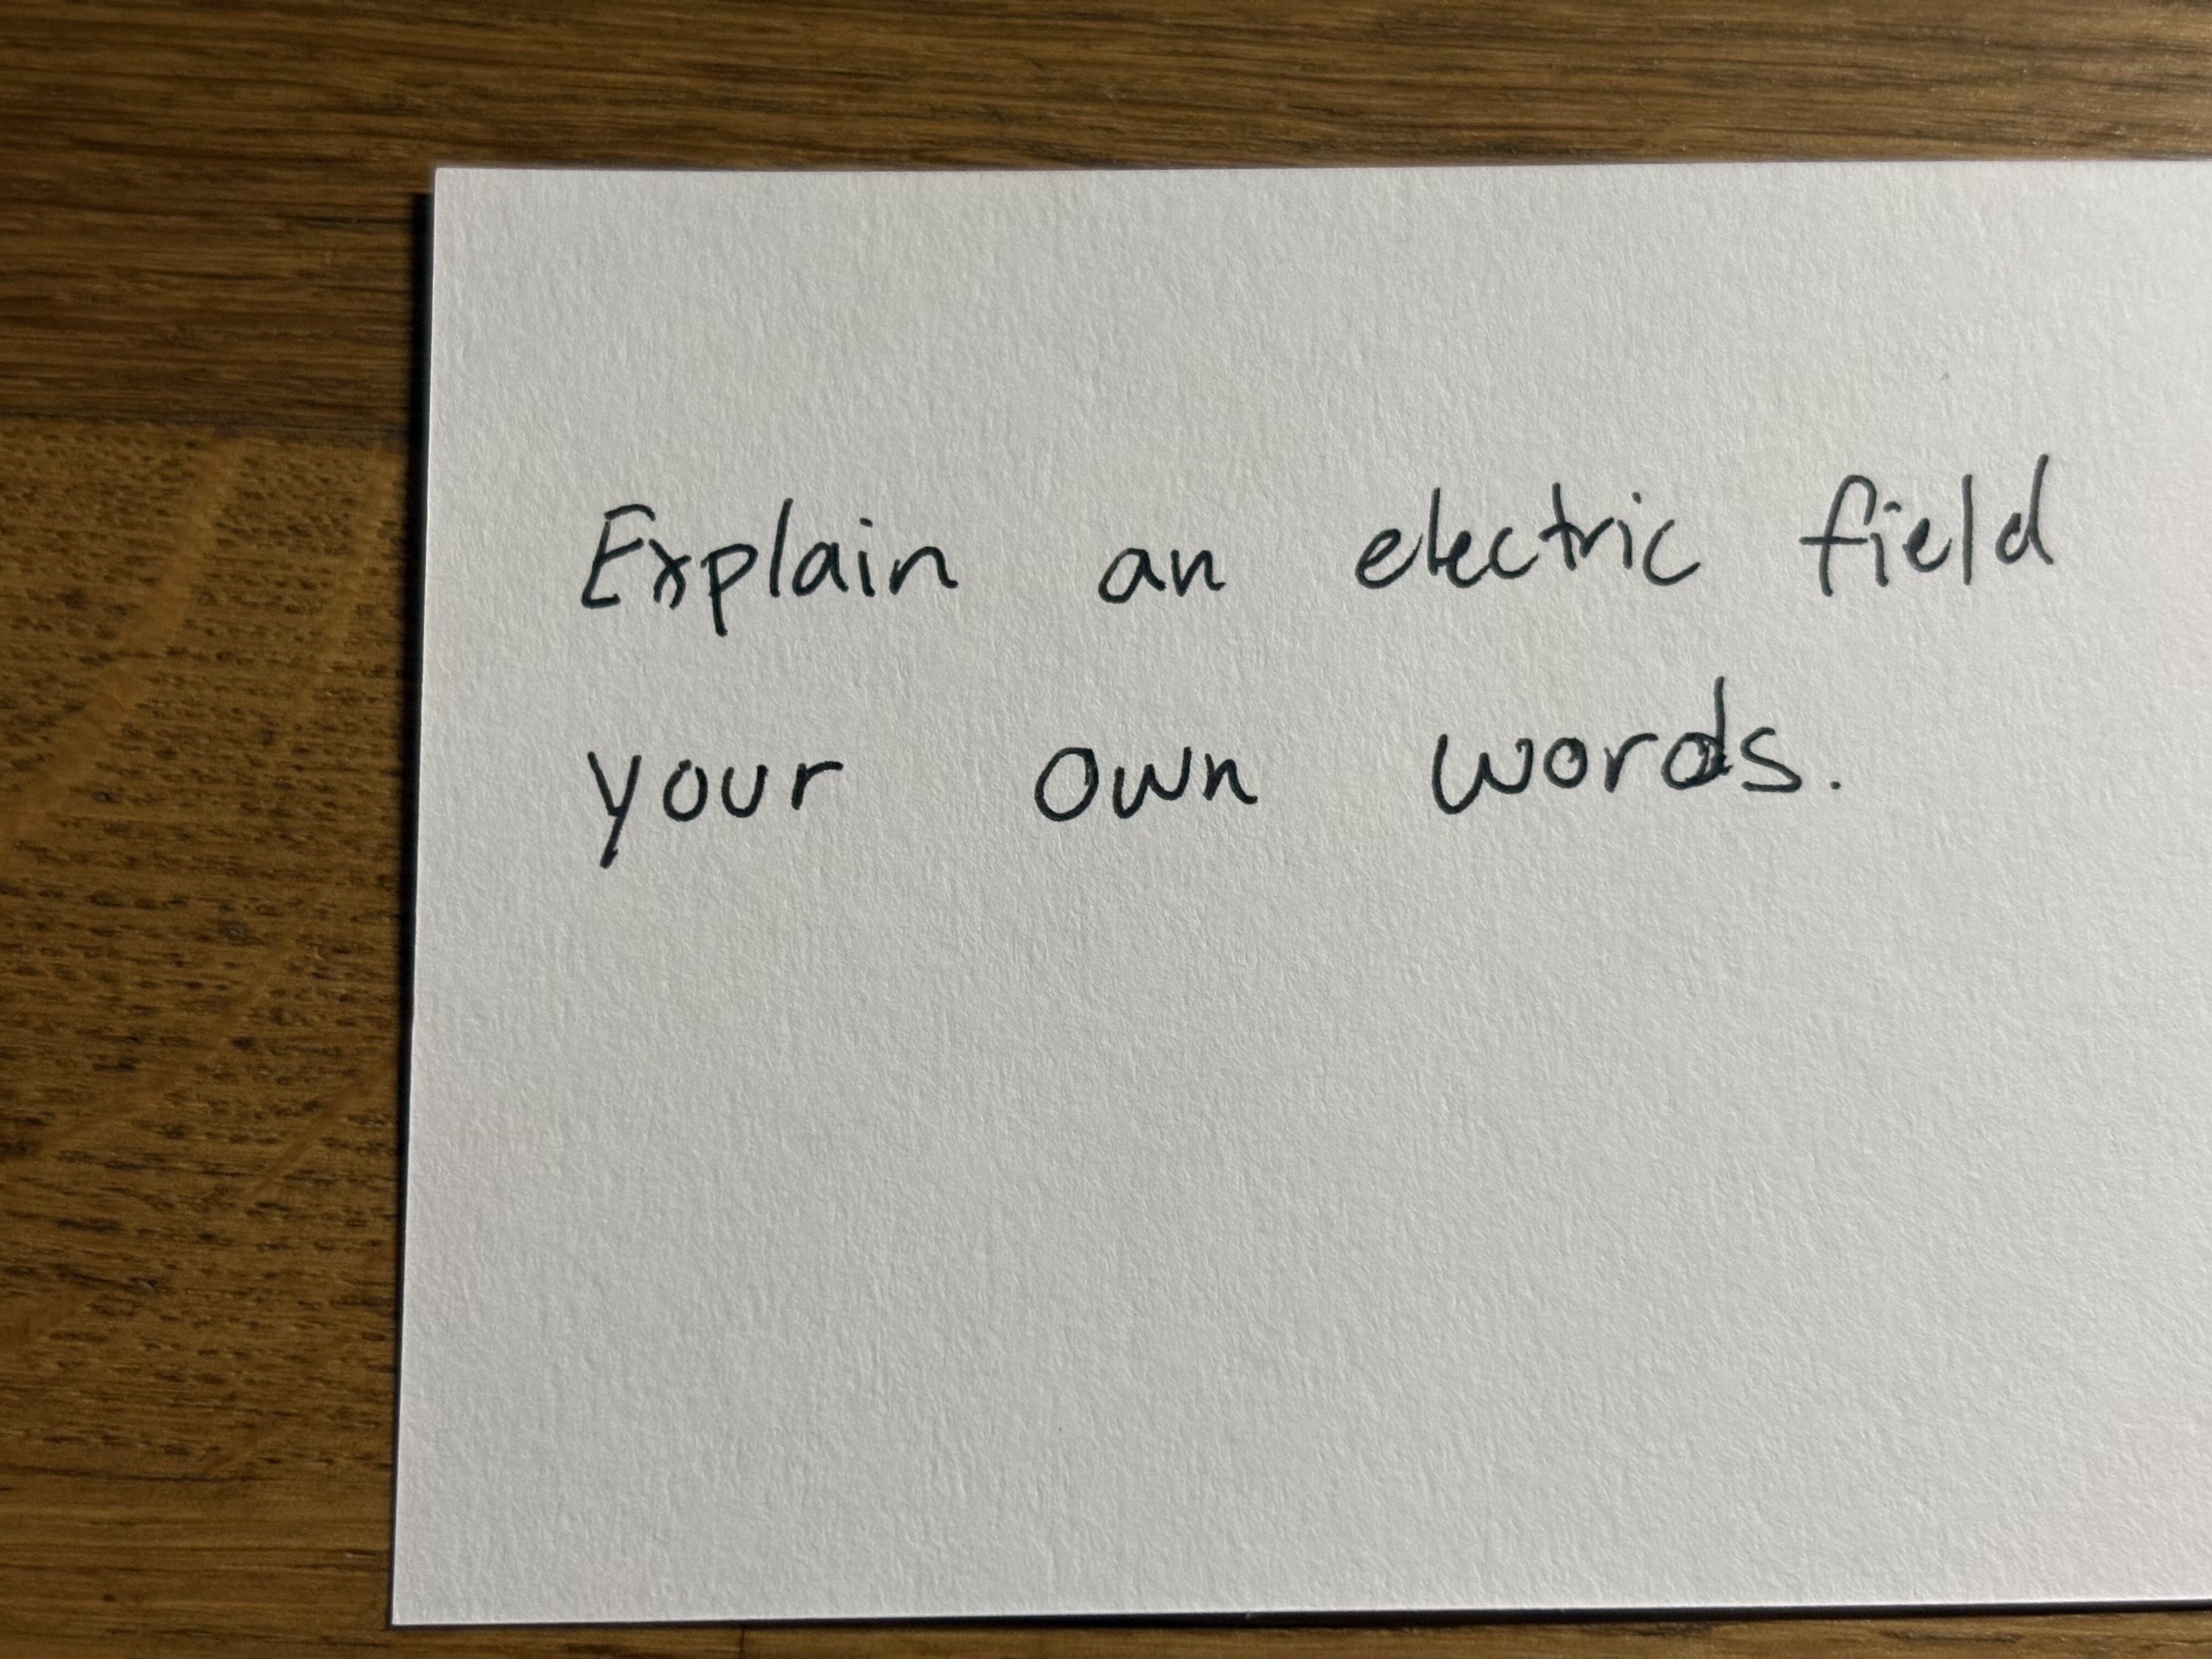 Explain an electric field
your own words.